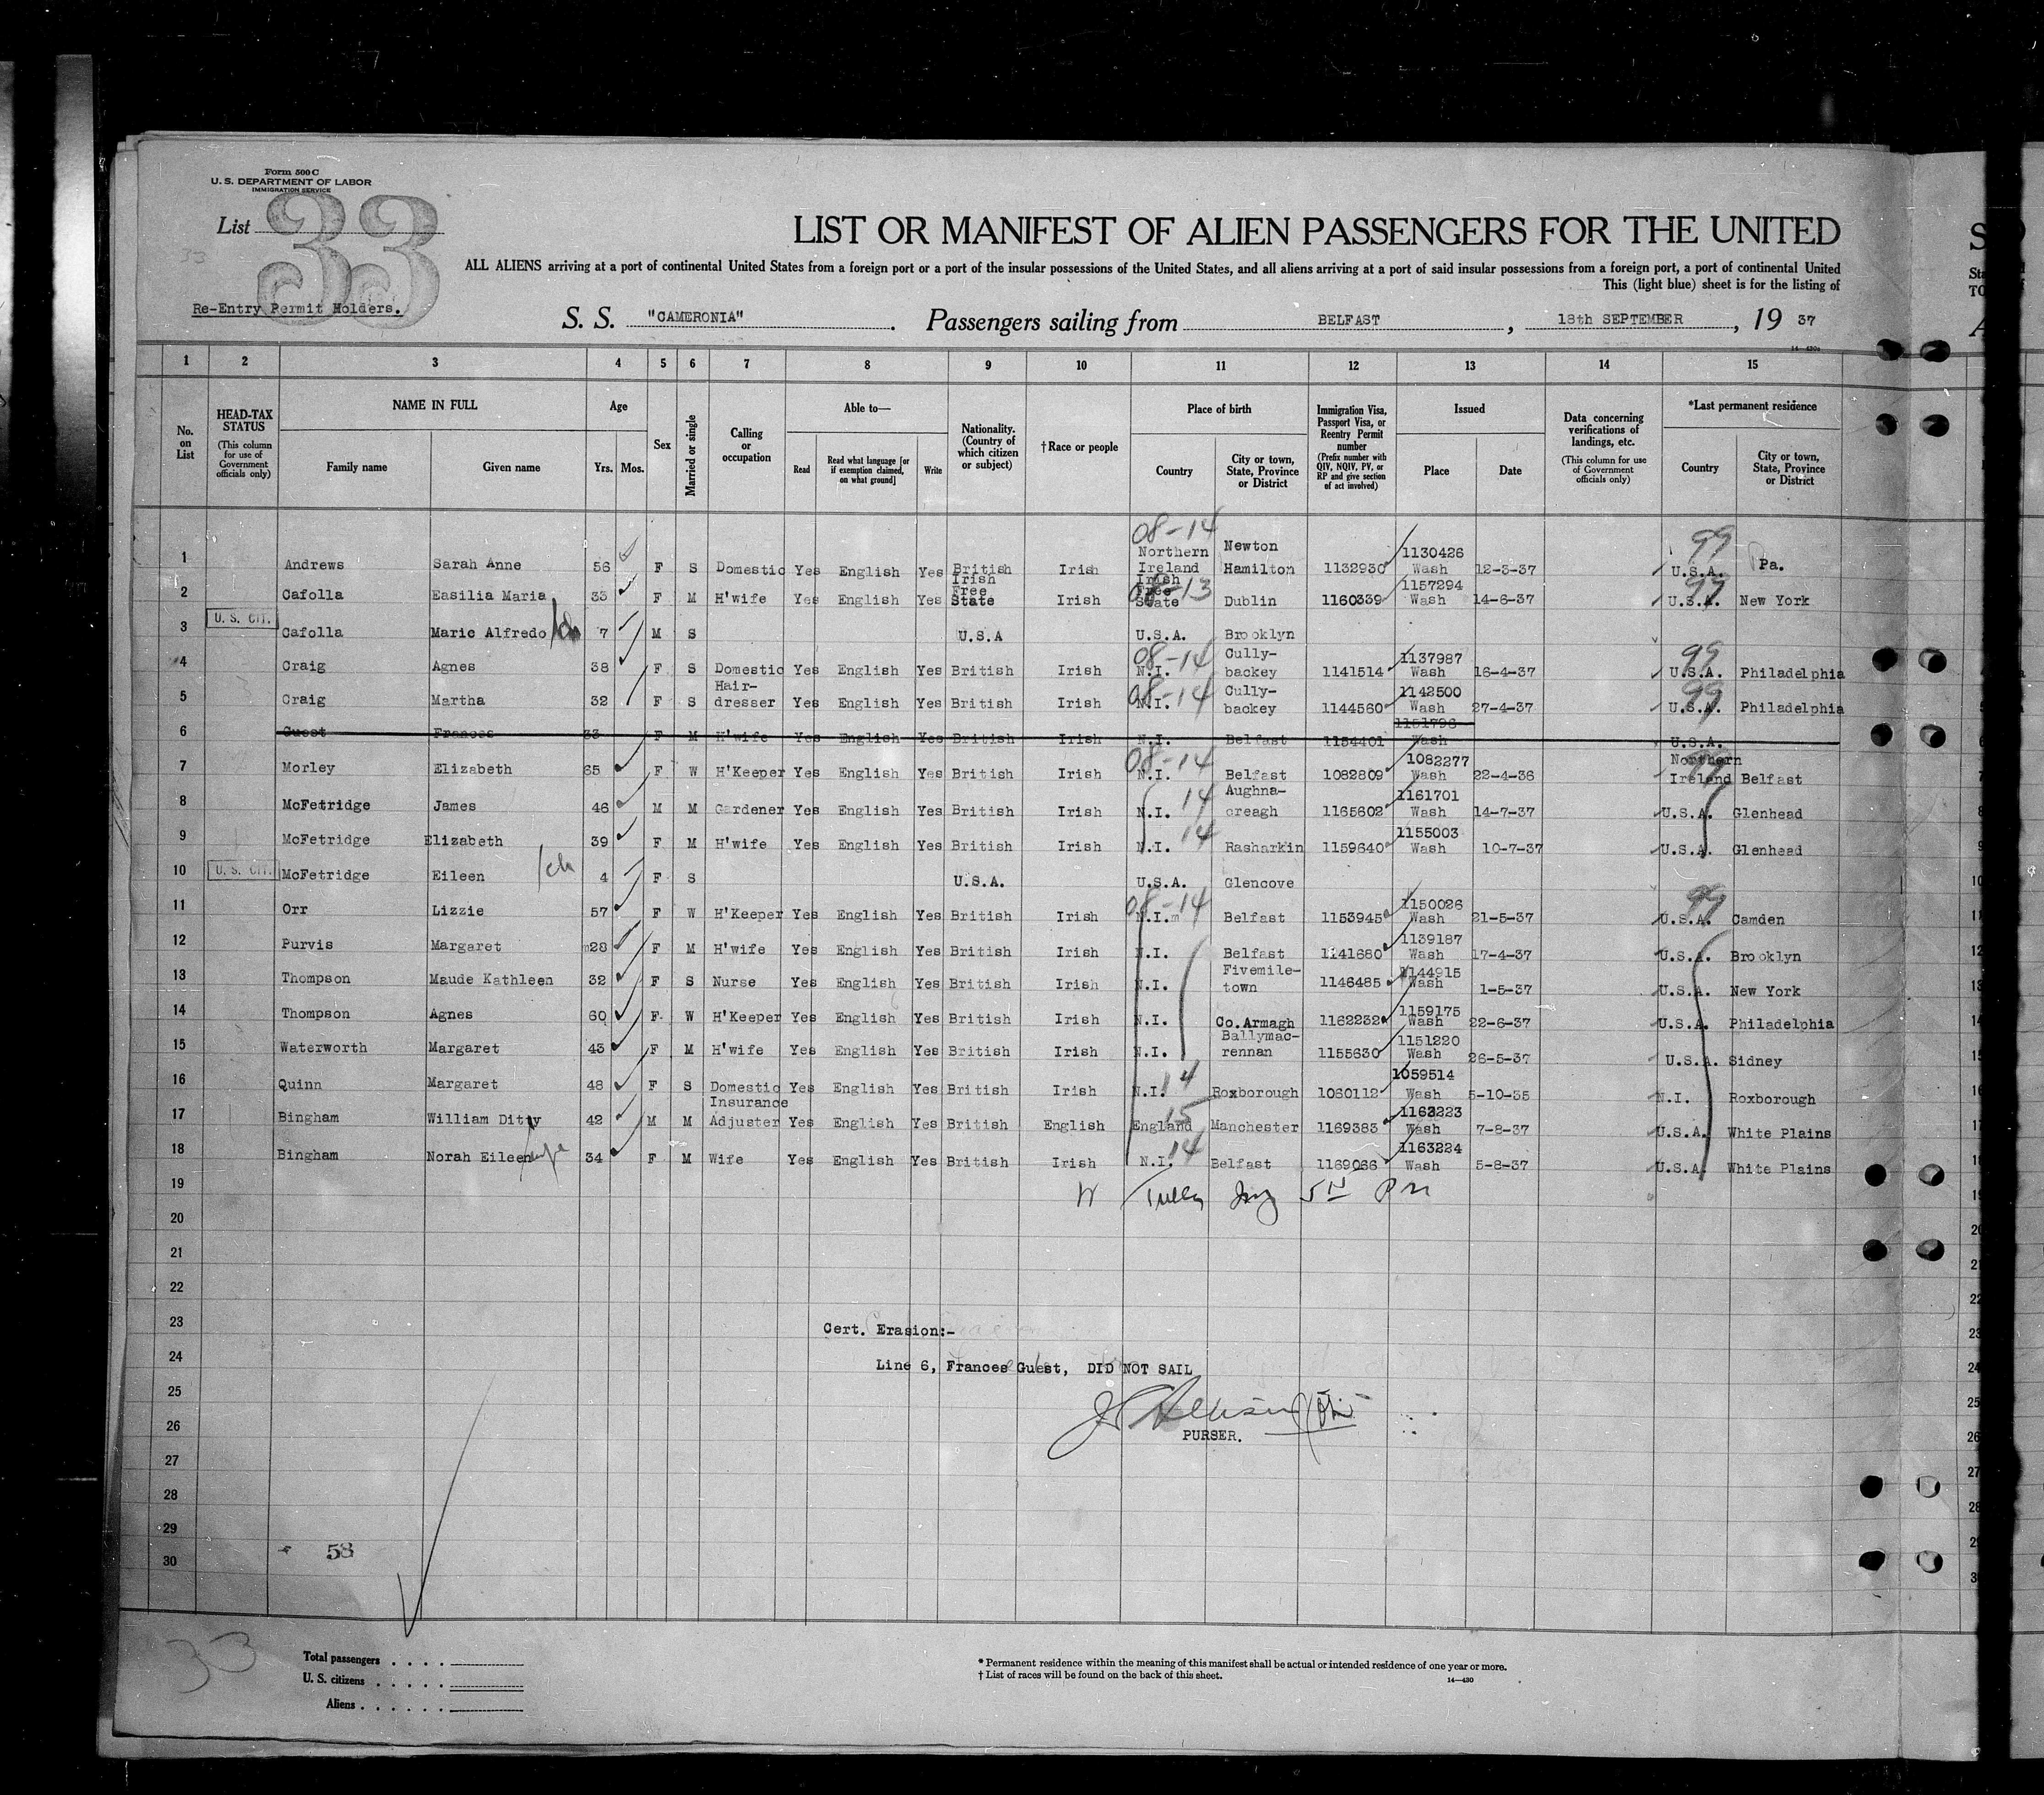 Form 500 C
U. S. DEPARTMENT OF LABOR
IMMIGRATION SERVICE
List 33
33
Re-Entry Permit Holders.
LIST OR MANIFEST OF ALIEN PASSENGERS FOR THE UNITED
ALL ALIENS arriving at a port of continental United States from a foreign port or a port of the insular possessions of the United States, and all aliens arriving at a port of said insular possessions from a foreign port, a port of continental United
This (light blue) sheet is for the listing of
S. S. "CAMERONIA". Passengers sailing from BELFAST, 18th SEPTEMBER, 19 37
14—430a
1 2 3 4 5 6 7 8 9 10 11 12 13 14 15
No. on List
HEAD-TAX STATUS (This column for use of Government officials only)
NAME IN FULL
Family name Given name
Age
Yrs. Mos.
Sex
Married or single
Calling or occupation
Able to—
Read Read what language [or if exemption claimed, on what ground] Write
Nationality. (Country of which citizen or subject)
†Race or people
Place of birth
Country City or town, State, Province or District
Immigration Visa, Passport Visa, or Reentry Permit number (Prefix number with QIV, NQIV, PV, or RP and give section of act involved)
Issued
Place Date
Data concerning verifications of landings, etc. (This column for use of Government officials only)
*Last permanent residence
Country City or town, State, Province or District
1 Andrews Sarah Anne 56 F S Domestic Yes English Yes British Irish 08-14 Northern Ireland Newton Hamilton 1132930 1130426 Wash 12-3-37 99 U.S.A. Pa.
2 Cafolla Easilia Maria 33 F M H'wife Yes English Yes Irish Free State Irish 08-13 Irish Free State Dublin 1160339 1157294 Wash 14-6-37 99 U.S.A. New York
3 U. S. CIT. Cafolla Mario Alfredo ch 7 M S U.S.A U.S.A. Brooklyn
4 Craig Agnes 38 F S Domestic Yes English Yes British Irish 08-14 N.I. Cully-backey 1141514 1137987 Wash 16-4-37 99 U.S.A. Philadelphia
5 Craig Martha 32 F S Hair-dresser Yes English Yes British Irish 08-14 N.I. Cully-backey 1144560 1142500 Wash 27-4-37 99 U.S.A. Philadelphia
6 Guest Frances 33 F M H'wife Yes English Yes British Irish N.I. Belfast 1154401 1151796 Wash U.S.A.
7 Morley Elizabeth 65 F W H'Keeper Yes English Yes British Irish 08-14 N.I. Belfast 1082809 1082277 Wash 22-4-36 99 Northern Ireland Belfast
8 McFetridge James 46 M M Gardener Yes English Yes British Irish 14 N.I. Aughna-creagh 1165602 1161701 Wash 14-7-37 U.S.A. Glenhead
9 McFetridge Elizabeth 39 F M H'wife Yes English Yes British Irish 14 N.I. Rasharkin 1159640 1155003 Wash 10-7-37 U.S.A. Glenhead
10 U. S. CIT. McFetridge Eileen ch 4 F S U.S.A. U.S.A. Glencove
11 Orr Lizzie 57 F W H'Keeper Yes English Yes British Irish 08-14 N.I. Belfast 1153945 1150026 Wash 21-5-37 99 U.S.A. Camden
12 Purvis Margaret 28 F M H'wife Yes English Yes British Irish N.I. Belfast 1141680 1139187 Wash 17-4-37 U.S.A. Brooklyn
13 Thompson Maude Kathleen 32 F S Nurse Yes English Yes British Irish N.I. Fivemile-town 1146485 1144915 Wash 1-5-37 U.S.A. New York
14 Thompson Agnes 60 F W H'Keeper Yes English Yes British Irish N.I. Co. Armagh 1162232 1159175 Wash 22-6-37 U.S.A. Philadelphia
15 Waterworth Margaret 43 F M H'wife Yes English Yes British Irish N.I. Ballymac-rennan 1155630 1151220 Wash 26-5-37 U.S.A. Sidney
16 Quinn Margaret 48 F S Domestic Yes English Yes British Irish 14 N.I. Roxborough 1060112 1059514 Wash 5-10-35 N.I. Roxborough
17 Bingham William Ditty 42 M M Insurance Adjuster Yes English Yes British English 15 England Manchester 1169383 1163223 Wash 7-8-37 U.S.A. White Plains
18 Bingham Norah Eileen wife 34 F M Wife Yes English Yes British Irish 14 N.I. Belfast 1169066 1163224 Wash 5-8-37 U.S.A. White Plains
19
20
21
22
23 Cert. Erasion:-
24 Line 6, Frances Guest, DID NOT SAIL
25
26 PURSER.
27
28
29
30 58
33
Total passengers
U. S. citizens
Aliens
* Permanent residence within the meaning of this manifest shall be actual or intended residence of one year or more.
† List of races will be found on the back of this sheet.
14—430